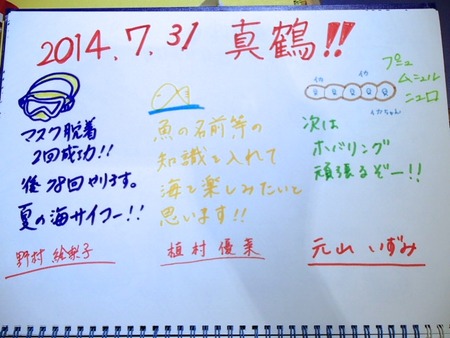 2014.7.31 真鶴!!
マスク脱着
2回成功!!
後28回やります。
夏の海サイコー!!
野村 絵梨子
魚の名前等の
知識を入れて
海を楽しみたいと
思います!!
植村 優菜
イカ イカ
イカちゃん
プニュ
ムニュル
ニュロ
次は
ホバリング
頑張るぞー!!
元山 いずみ